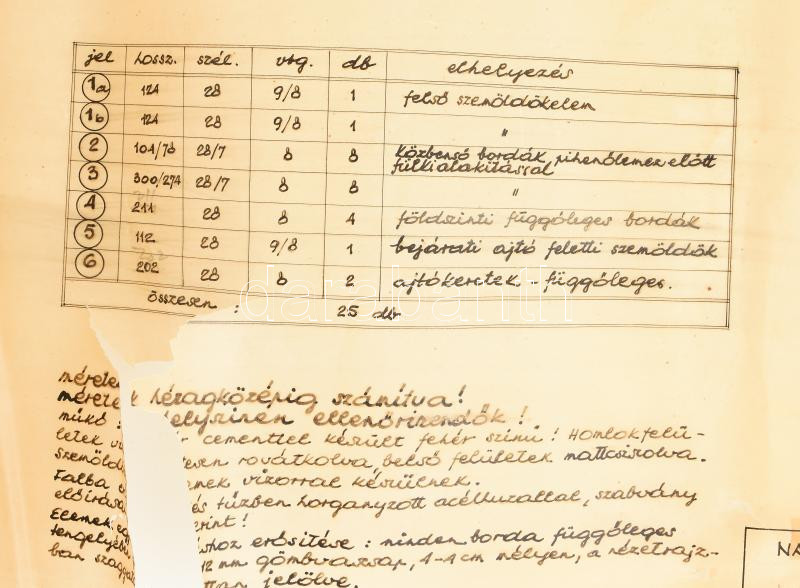 jel hossz. szél. vtg. db elhelyezés
1a 124 28 9/8 1 felső szemöldökelem
1b 124 28 9/8 1 "
2 101/78 28/7 8 8 közbenső bordák, pihenőlemez előtt
fülkialakítással
3 300/274 28/7 8 8 "
4 211 28 8 4 földszinti függőleges bordák
5 112 28 9/8 1 bejárati ajtó feletti szemöldök
6 202 28 8 2 ajtókeretek - függőleges.
összesen : 25 db
darabanth
hézagközépig számítva!
méretek helyszínen ellenőrizendők!
műkő : cementtel készült fehér színű! Homlokfelü-
letek rovátkolva, belső felületek mattcsiszolva.
vízorral készülnek.
Falba és tűzben horganyzott acélhuzallal, szabvány
Elemek erősítése : minden borda függőleges
12 mm gömbvassap, 4-4 cm mélyen, a nézetrajz-
ban jelölve.
NA